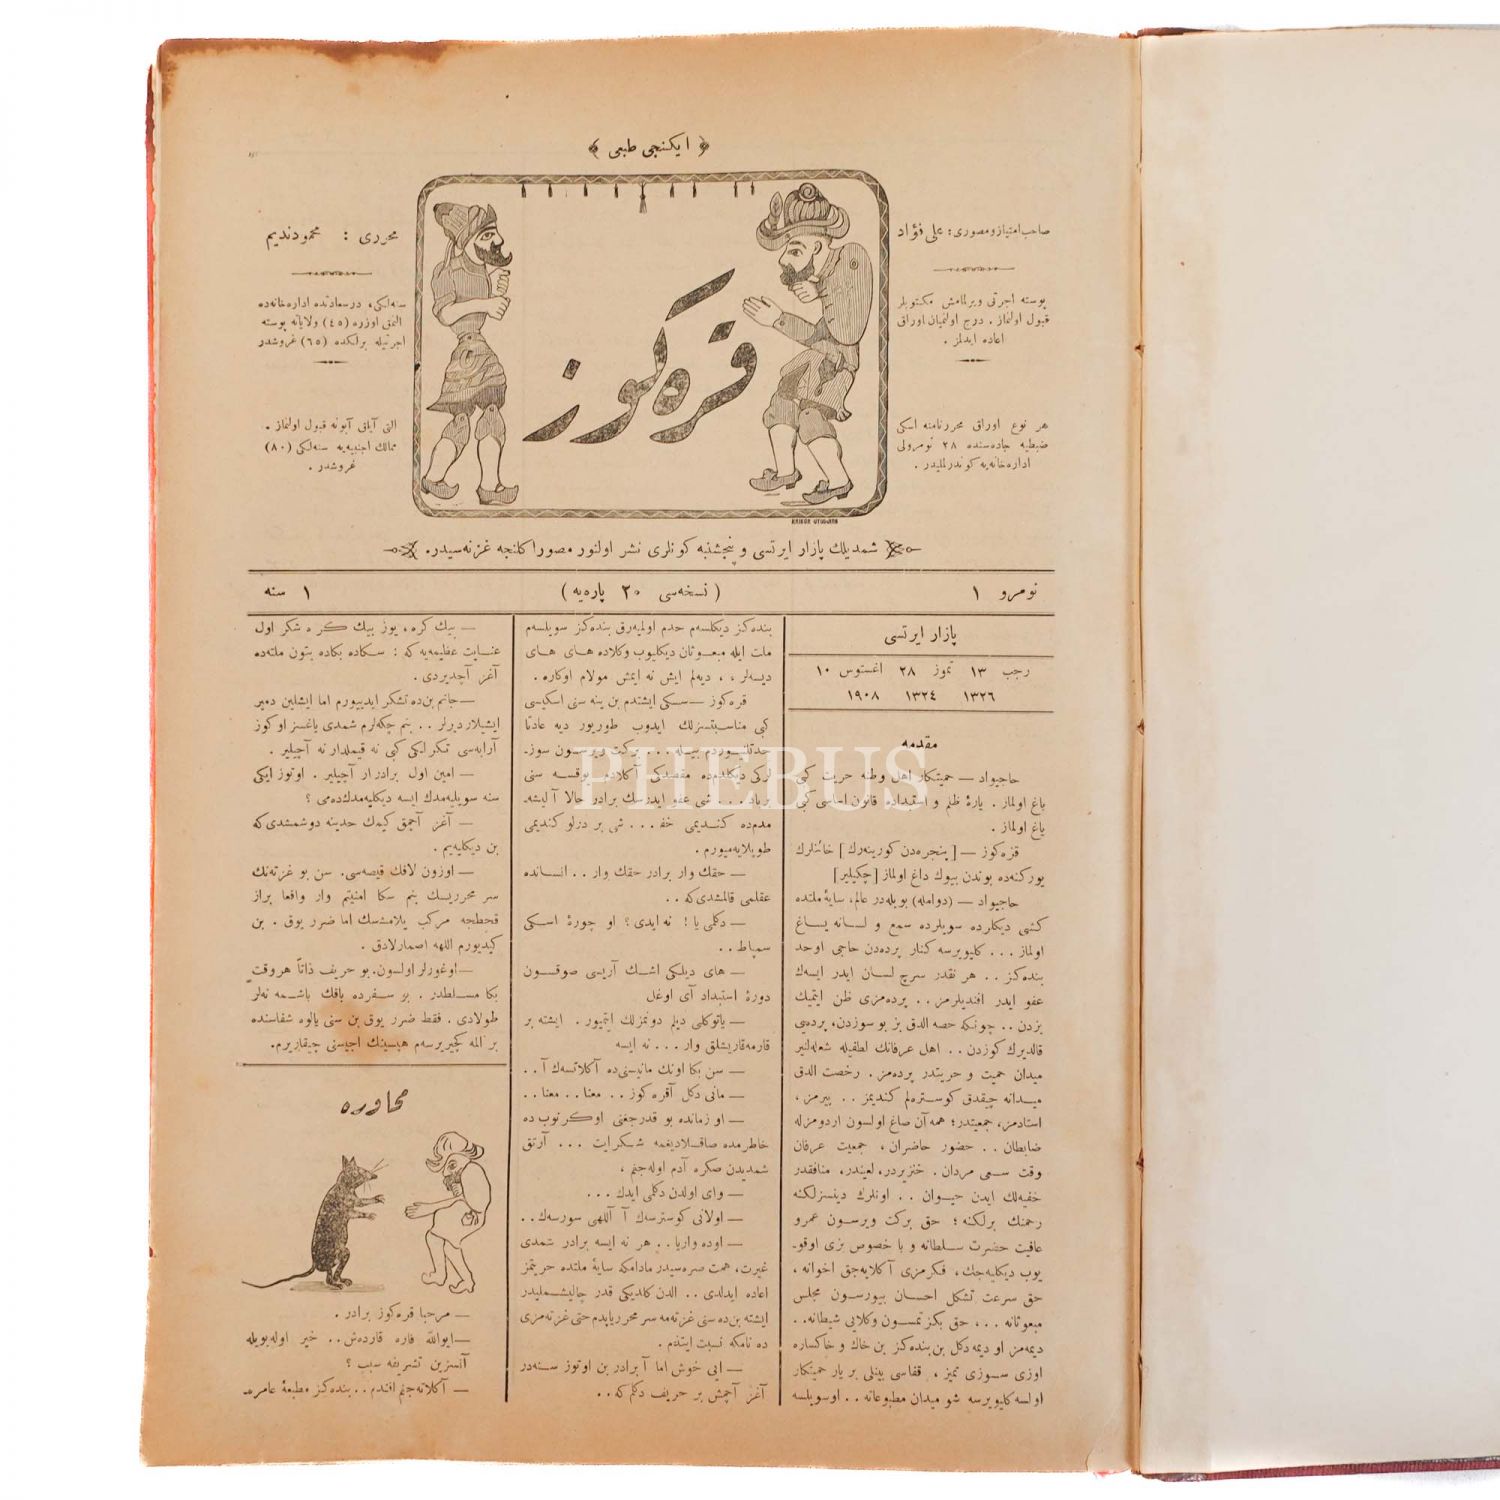 ﴿ ایكنجی طبعی ﴾
صاحب امتیاز و مصوری : علی فؤاد
پوسته اجرتی ویرلمامش مكتوبلر
قبول اولنماز . درج اولنمیان اوراق
اعاده ایدلمز .
هر نوع اوراق محرر نامنه اسكی
ضبطیه جاده‌سنده ٢٨ نومرولی
اداره‌خانه‌یه كوندرلملیدر .
قره كوز
محرری : محمود ندیم
سنه‌لكی، درسعادتده اداره‌خانه‌ده
آلنمق اوزره (٤٥) ولایاته پوسته
اجرتیله برلكده (٦٥) غروشدر
التی آیلق آبونه قبول اولنماز .
ممالك اجنبیه‌یه سنه‌لكی (٨٠)
غروشدر .
شمدیلك پازار ایرتسی و پنجشنبه كونلری نشر اولنور مصور اكلنجه غزته‌سیدر.
نومرو ١
( نسخه‌سی ٢٠ پاره‌یه )
١ سنه
پازار ایرتسی
رجب ١٣ تموز ٢٨ اغستوس ١٠
١٣٢٦ ١٣٢٤ ١٩٠٨
مقدمه
حاجیواد — حمیتكار اهل وطنه حریت كبی
باغ اولماز . یارهٔ ظلم و استبداده قانون اساسی كبی
یاغ اولماز .
قره‌كوز — [پنجره‌دن كورینه‌رك] خائنلرك
یوركنه‌ده بوندن بیوك داغ اولماز [چكیلیر]
حاجیواد — (دوامله) بویله‌در عالم، سایهٔ ملتده
كشی دیكلرده سویلرده سمع و لسانه یساغ
اولماز . . . كلیویرسه كنار پرده‌دن حاجی اوحد
بنده‌كز . . هر نقدر سرچ لسان ایدر ایسه‌ك
عفو ایدر افندیلرمز . . پرده‌مزی ظن ایتمیك
بزدن . . چونكه حصه الدق بز بو سوزدن، پرده‌یی
قالدیرك كوزدن . . اهل عرفانك لطفیله شعله‌لنیر
میدان حمیت و حریتدر پرده‌مز . رخصت الدق
میدانه چیقدق كوستره‌لم كندیمز . . پیرمز ،
استادمز، جمعیتدر؛ همه آن صاغ اولسون اردومزله
ضابطان . . حضور حاضران ، جمعیت عرفان
وقت سعی مردان . خنزیردر، لعیندر، منافقدر
خفیه‌لك ایدن حیوان . . اونلرك دینسزلكنه
رحمتك برلكنه ؛ حق بركت ویرسون عمرو
عافیت حضرت سلطانه و با خصوص بزی اوقو-
یوب دیكلیه‌جك، فكرمزی آكلایه‌جق اخوانه ،
حق سرعت تشكل احسان بیورسون مجلس
مبعوثانه . . ، حق بكز تمسون وكلایی شیطانه. .
دیه‌مز او دیمه دكل بن بنده‌كز بن خاك و خاكساره
اوزی سوزی تمیز ، قفاسی بیتلی بر یار حمیتكار
اولسه كلیویرسه شو میدان مطبوعاته . . او سویلسه
بنده‌كز دیكلسه‌م حدم اولمیه‌رق بنده‌كز سویلسه‌م
ملت ایله مبعوثان دیكلیوب وكلاده های های
دیسه‌لر ، ، دیه‌لم ایش نه ایمش مولام اوكاره .
قره‌كوز — سكی ایشتدم بن ینه سنی اسكیسی
كبی مناسبتسزلك ایدوب طوریور دیه عادتا
حدتلنیوردم بیله . . . بركت ویرسون سوز-
لركی دیكلدم‌ده مقصدكی آكلادم یوقسه سنی
. . . شی عفو ایدرسك برادر حالا آلیشه-
مدم‌ده كندیمی خفـ . . . شی بر درلو كندیمی
طوپلایه‌میورم .
— حقك وار برادر حقك وار . . انسانده
عقلمی قالمشدی كه . .
— دكلمی یا! نه ایدی؟ او چورهٔ اسكی
سمپاط . .
— های دیلكی اشك آریسی صوقسون
دورهٔ استبداد آی اوغل
— یاتوكلی دیلم دونمزلك ایتمیور . ایشته بر
قارمه‌قاریشلق وار . . . نه ایسه
— سن بكا اونك مانیسنی‌ده آكلاتسه‌ك آ . .
— مانی دكل آقره كوز . . معنا . . معنا . .
— او زمانده بو قدرجغنی اوكرنوب ده
خاطرمده صاقلادیغمه شكر ایت . . . آرتق
شمدیدن صكره آدم اوله‌جغم ،
— وای اولدن دكلمی ایدك . . .
— اولانی كوسترسه‌ك آ آللهی سورسه‌ك . .
— اوده واریا . . هر نه ایسه برادر شمدی
غیرت، همت صره‌سیدر مادامكه سایهٔ ملتده حریتمز
اعاده ایدلدی . . الدن كلدیكی قدر چالیشملیدر
ایشته بن‌ده سنی غزته‌مه سر محرر یاپدم حتی غزته‌مزی
ده نامكه نسبت ایتدم .
— ایی خوش اما آ برادر بن اوتوز سنه‌در
آغز آچمش بر حریف دكلم كه . .
— بیك كره ، یوز بیك كره شكر اول
عنایت عظیمه‌یه كه : سكاده بكاده بتون ملته‌ده
آغز آچدیردی .
— جانم بن‌ده تشكر ایدییورم اما ایشلین دمیر
ایشیلار دیرلر . . بنم چكه‌لرم شمدی یاغسز اوكوز
آرابه‌سی تكرلكی كبی نه قیملدار نه آچیلیر .
— امین اول برادرار آچیلیر . اوتوز ایكی
سنه سویلیه‌مدك ایسه دیكلیه‌مدك‌ده‌می ؟
— آغز آچمق كیمك حدینه دوشمشدی كه
بن دیكلیه‌یم .
— اوزون لافك قیصه‌سی. سن بو غزته‌نك
سر محرریسك بنم سكا امنیتم وار واقعا براز
قحطجه مركب یالامشسك اما ضرر یوق . بن
كیدیورم اللهه اصمارلادق .
— اوغورلر اولسون. بو حریف ذاتاً هر وقت
بكا مسلطدر . بو سفرده باقك باشمه نه‌لر
طولادی . فقط ضرر یوق بن سنی یالوه شفاسنده
بر المه كچیریرسه‌م هپسینك اجیسنی چیقاریرم.
محاوره
— مرحبا قره‌كوز برادر .
— ایوالله فاره قارده‌ش . . خیر اوله بویله
آنسزین تشریفه سبب ؟
— آكلاته‌جغم افندم . . بنده‌كز مطبعهٔ عامره-
PHEBUS